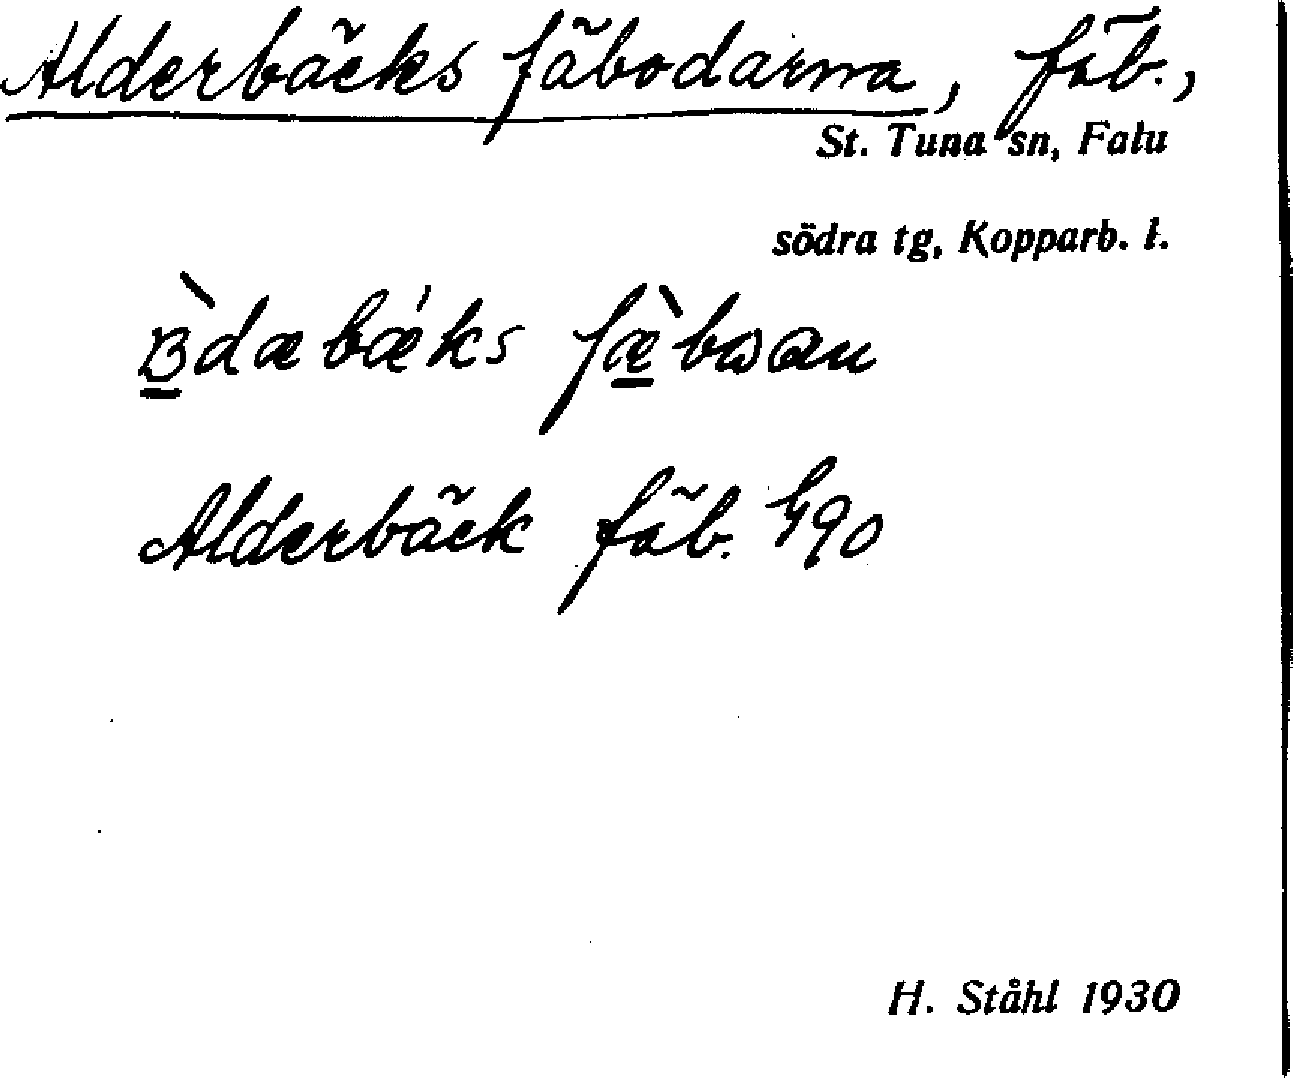 Alderbäcks fäbodarna, fäb.,
St. Tuna sn, Falu
södra tg, Kopparb. l.
Alderbäck fäb.
H. Ståhl 1930